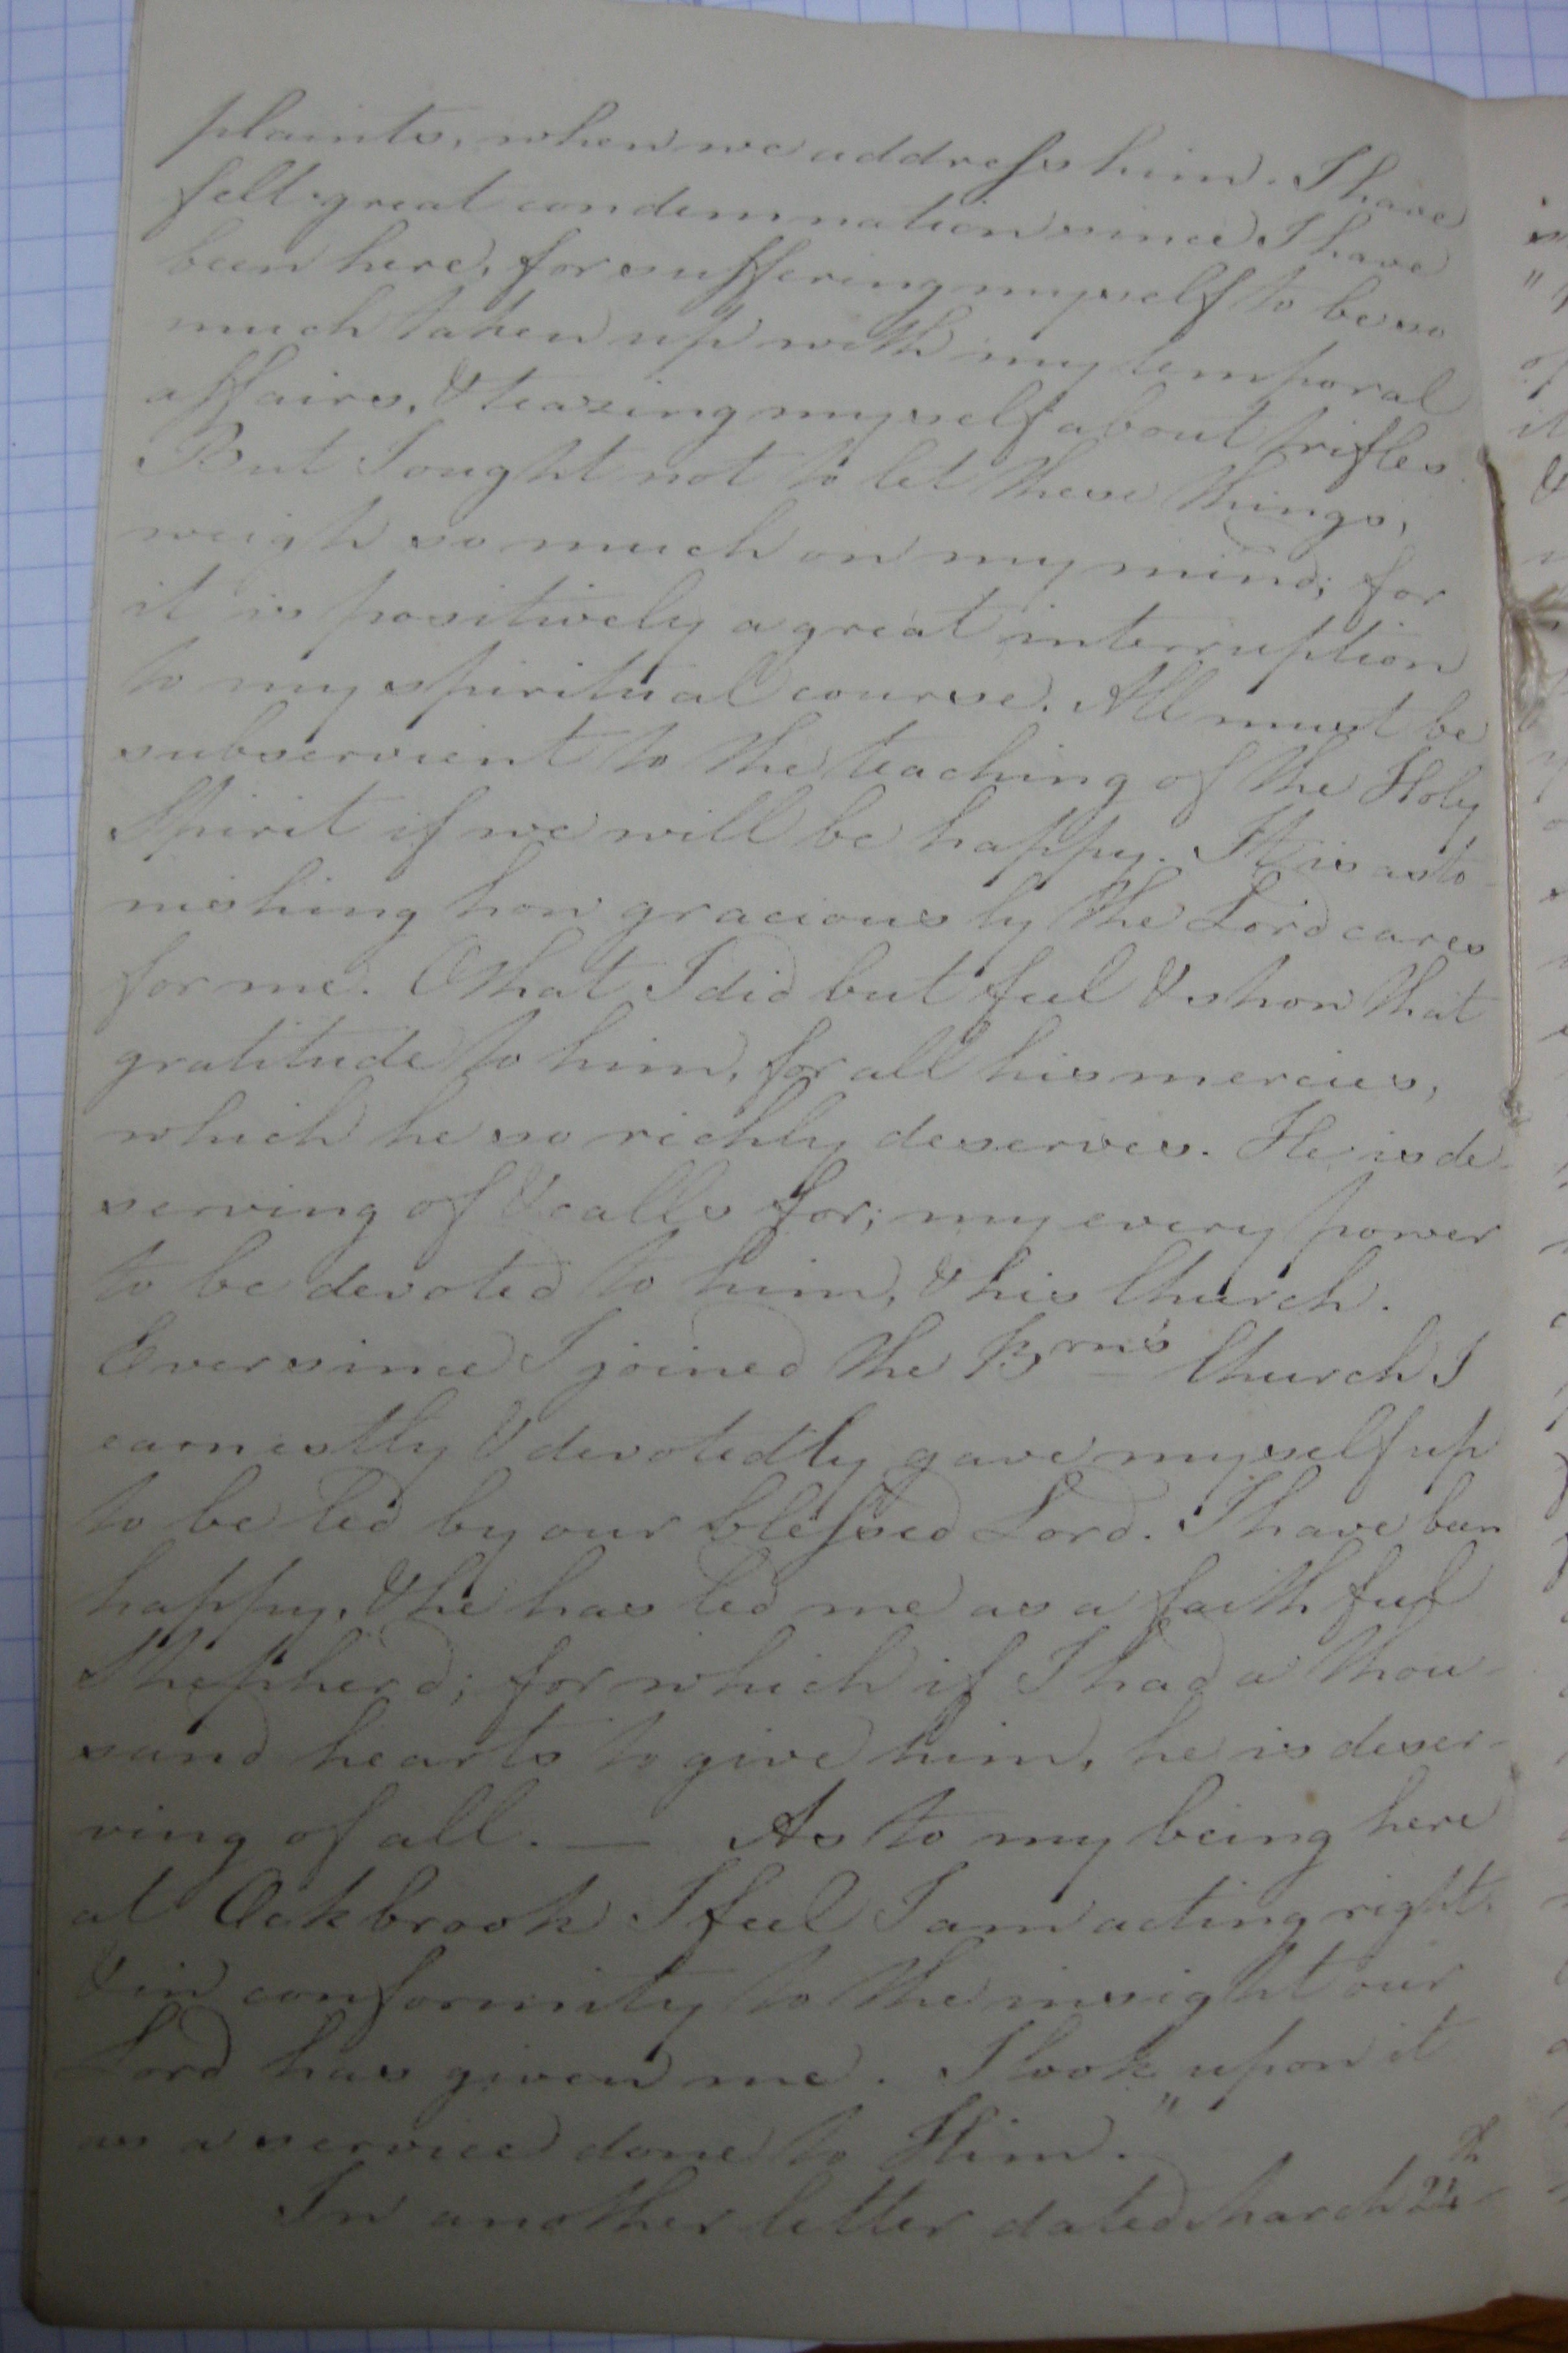 plaints, when we address him. I have
felt great condemnation since I have
been here, for suffering myself to be so
much taken up with my temporal
affairs, & teazing myself about trifles.
But I ought not to let these things,
weigh so much on my mind; for
it is positively a great interruption
to my spiritual course. All must be
subservient to the teaching of the Holy
Spirit if we will be happy. It is asto-
nishing how graciously the Lord cares
for me. O that I did but feel & show that
gratitude to him, for all his mercies,
which he so richly deserves. He is de-
serving of & calls for; my every power
to be devoted to him, & his Church.
Ever since I joined the Brn's Church I
earnestly & devotedly gave myself up
to be led by our blessed Lord. I have been
happy, & he has led me as a faithful
Shepherd; for which if I had a thou-
sand hearts to give him, he is deser-
ving of all. — As to my being here
at Ockbrook I feel I am acting right
& in conformity to the insight our
Lord has given me. I look upon it
as a service done to Him."
In another letter dated March 24th